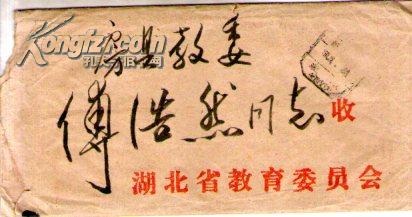 Kongfz.com
孔夫子旧书网
房县教委
傅浩然同志 收
湖北省教育委员会